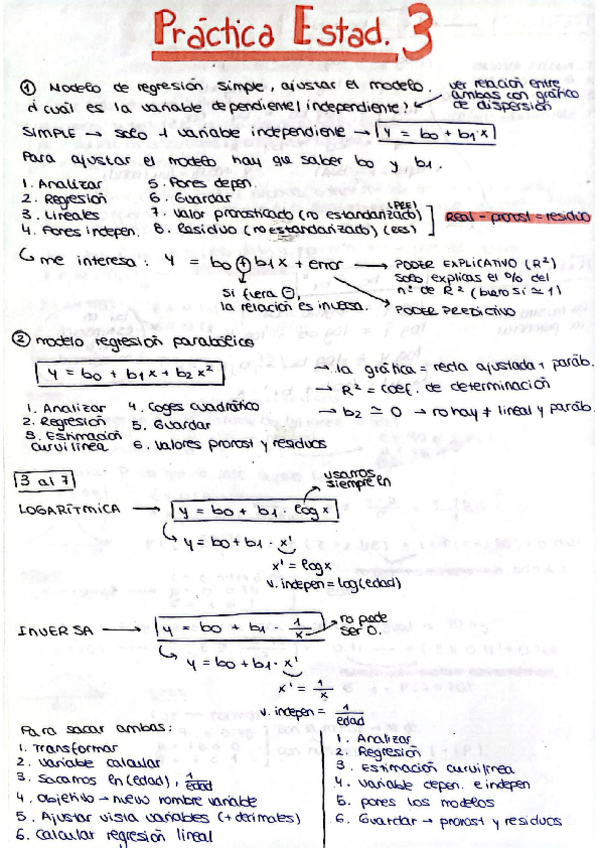 Práctica Estad. 3
① Modelo de regresión simple, ajustar el modelo.
¿cuál es la variable dependiente/independiente? ← ver relación entre ambas con gráfico de dispersión
SIMPLE → solo 1 variable independiente → y = b0 + b1·x
Para ajustar el modelo hay que saber b0 y b1.
1. Analizar
2. Regresión
3. Lineales
4. Pones indepen.
5. Pones depen.
6. Guardar
7. Valor pronosticado (no estandarizado) (PRE)
8. Residuo (no estandarizado) (RES)
Real - pronost = residuo
me interesa: y = b0 + b1x + error → PODER EXPLICATIVO (R²)
solo explicas el % del
nº de R² (bueno si ≃ 1)
PODER PREDICTIVO
Si fuera ⊖,
la relación es inversa.
② modelo regresión parabólico
y = b0 + b1x + b2x²
→ la gráfica = recta ajustada + paráb.
→ R² = coef. de determinación
→ b2 ≃ 0 → no hay + lineal y paráb.
1. Analizar
2. Regresión
3. Estimación curvilínea
4. Coges cuadrático
5. Guardar
6. Valores pronost y residuos
3 al 7
usamos siempre ln
LOGARÍTMICA → y = b0 + b1 · log x
y = b0 + b1 · x'
x' = log x
v. indepen = log(edad)
INVERSA → y = b0 + b1 · 1/x → no puede ser 0.
y = b0 + b1 · x'
x' = 1/x
v. indepen = 1/edad
Para sacar ambas:
1. Transformar
2. Variable calcular
3. Sacamos ln(edad), 1/edad
4. Objetivo → nuevo nombre variable
5. Ajustar vista variables (+ decimales)
6. Calcular regresión lineal
1. Analizar
2. Regresión
3. Estimación curvilínea
4. Variable depen. e indepen
5. pones los modelos
6. Guardar → pronost y residuos